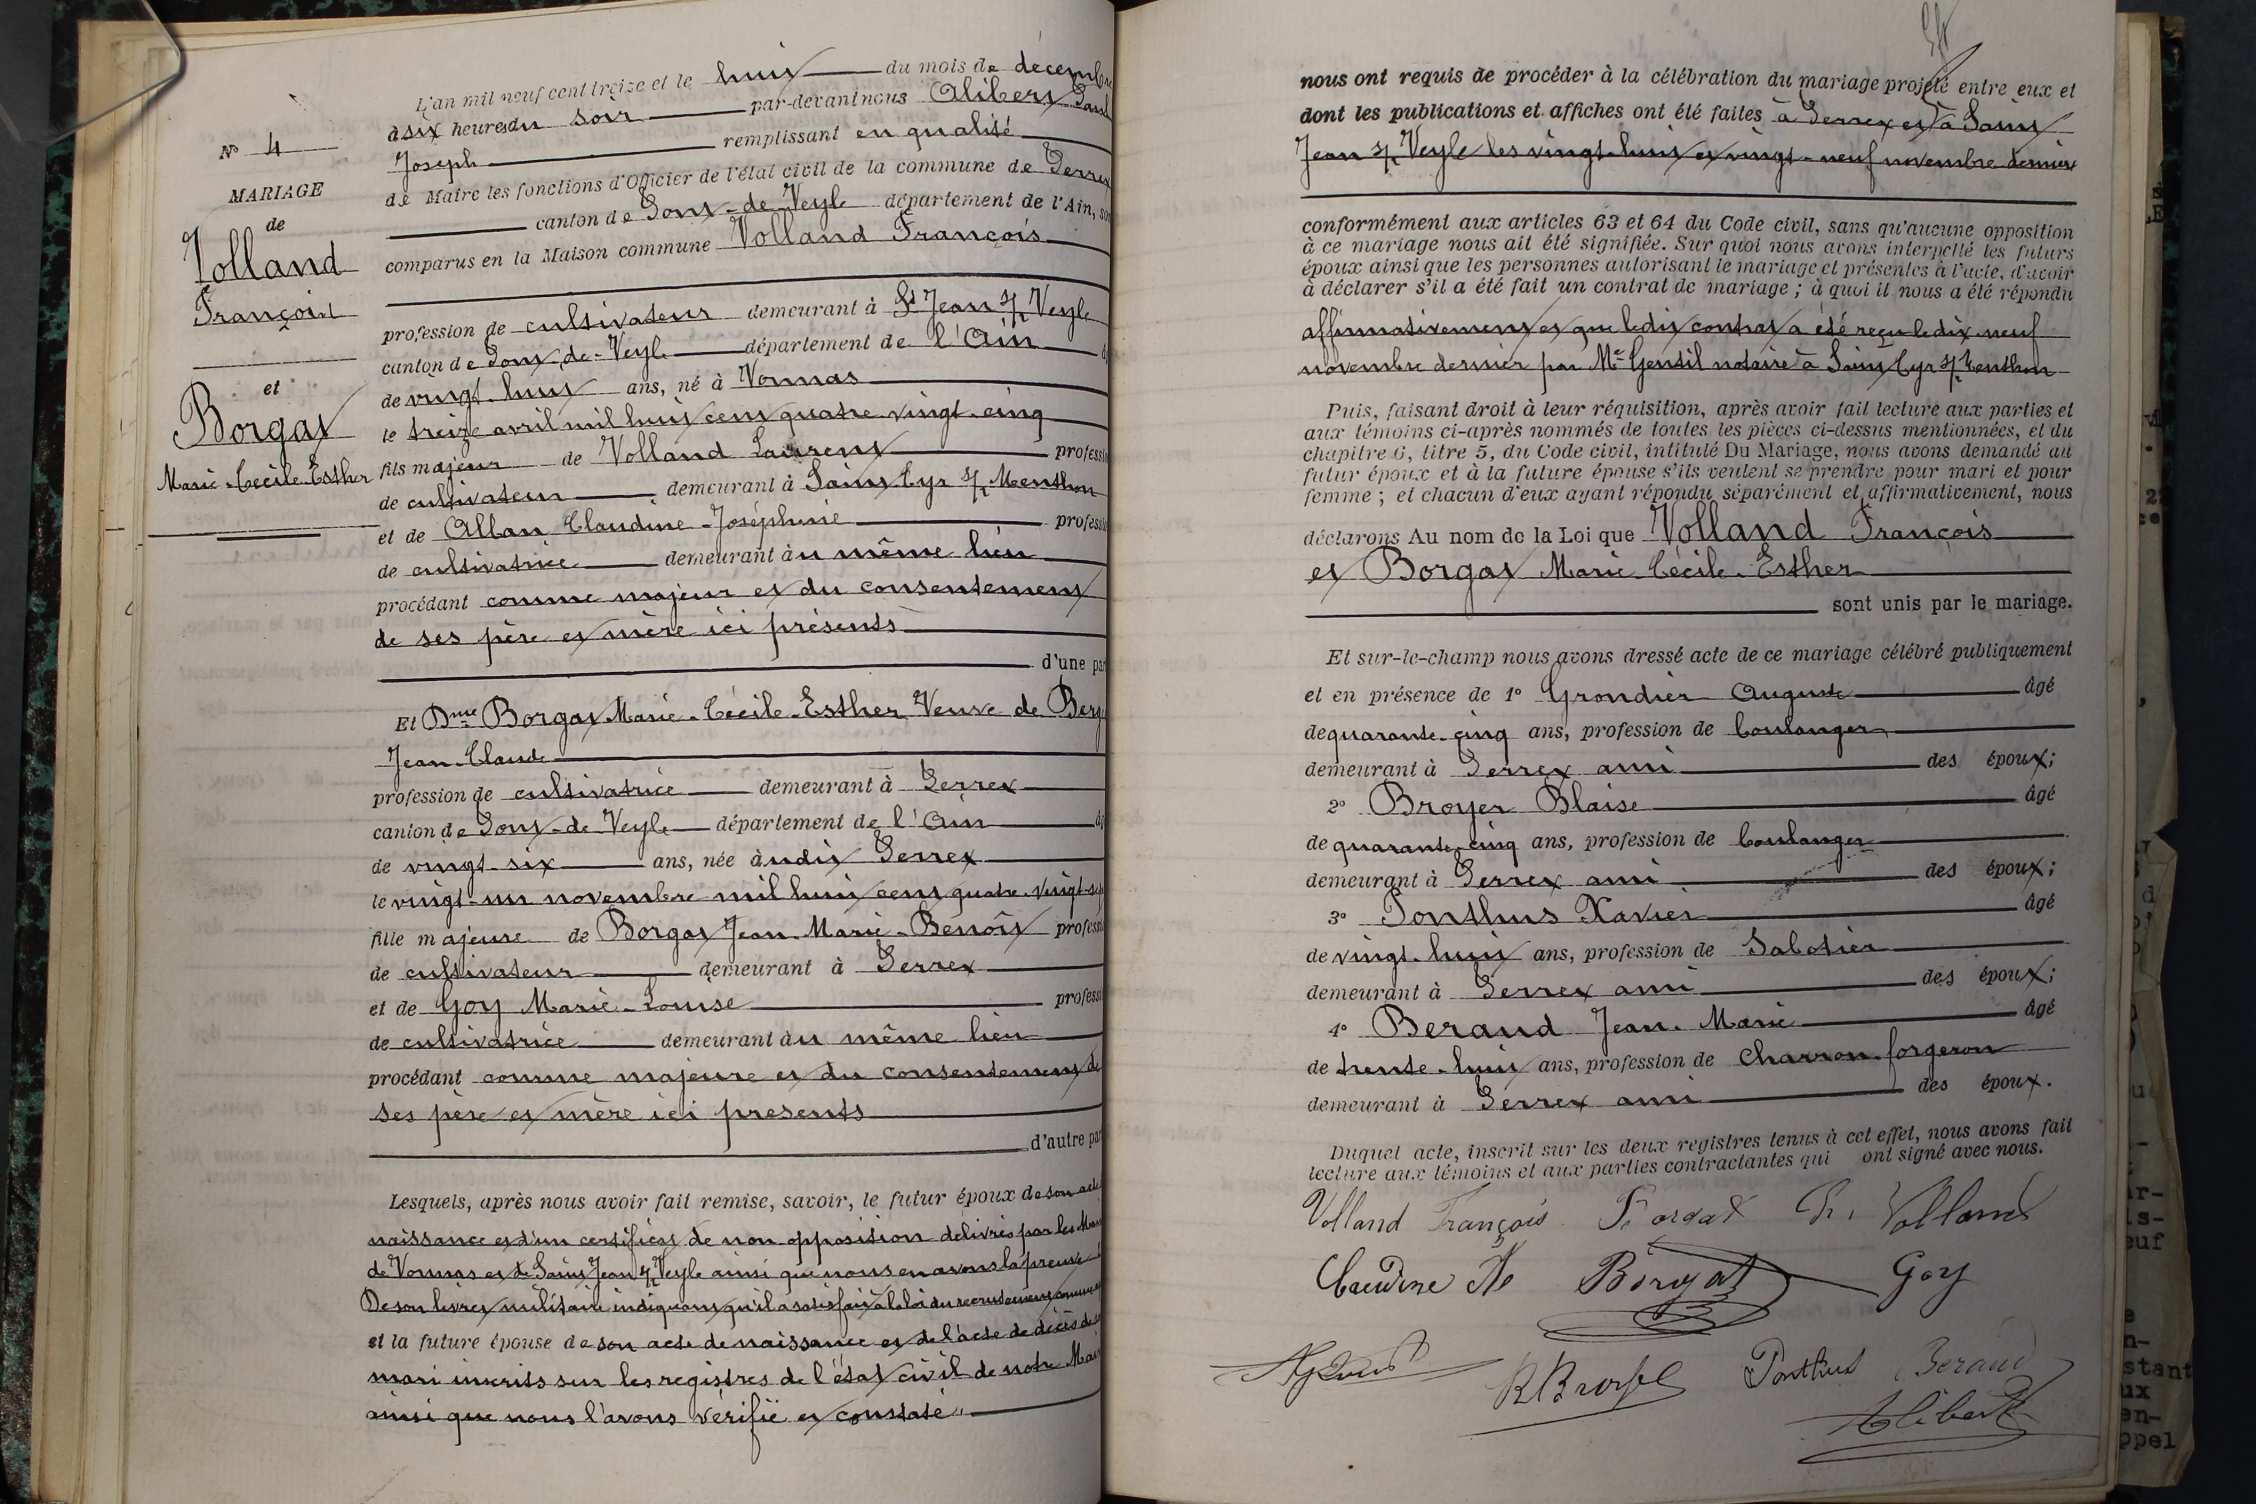 N° 4
MARIAGE
de
Volland
François
et
Borgat
Marie-Cécile-Esther
L'an mil neuf cent treize et le huit du mois de décembre
à six heures du soir par-devant nous Alibert Paul
Joseph remplissant en qualité
de Maire les fonctions d'Officier de l'état civil de la commune de Perrex
canton de Pont-de-Veyle département de l'Ain, so
comparus en la Maison commune Volland François
profession de cultivateur demeurant à St Jean s/ Veyle
canton de Pont-de-Veyle département de l'Ain
de vingt-huit ans, né à Vonnas
le treize avril mil huit cent quatre-vingt-cinq
fils majeur de Volland Laurent professio
de cultivateur demeurant à Saint Cyr s/ Menthon
et de Allan Claudine-Joséphine professio
de cultivatrice demeurant au même lieu
procédant comme majeur et du consentement
de ses père et mère ici présents
d'une par
Et Dme Borgat Marie-Cécile-Esther Veuve de
Jean-Claude
profession de cultivatrice demeurant à Perrex
canton de Pont-de-Veyle département de l'Ain
de vingt-six ans, née àudit Perrex
le vingt-un novembre mil huit cent quatre-vingt-sept
fille majeure de Borgat Jean-Marie-Benoît professi
de cultivateur demeurant à Perrex
et de Goy Marie-Louise professi
de cultivatrice demeurant au même lieu
procédant comme majeure et du consentement de
ses père et mère ici présents
d'autre par
Lesquels, après nous avoir fait remise, savoir, le futur époux de son acte
naissance et d'un certificat de non opposition délivrés par les
de Vonnas et de Saint Jean s/ Veyle ainsi que nous en avons la preuve
De son livret militaire indiquant qu'il a satisfait à la loi du recrutement
et la future épouse de son acte de naissance et de l'acte de décès de
mari inscrits sur les registres de l'état civil de notre Mairie
ainsi que nous l'avons vérifié et constaté
nous ont requis de procéder à la célébration du mariage projeté entre eux et
dont les publications et affiches ont été faites à Perrex et à Saint
Jean s/ Veyle les vingt-huit et vingt-neuf novembre dernier
conformément aux articles 63 et 64 du Code civil, sans qu'aucune opposition
à ce mariage nous ait été signifiée. Sur quoi nous avons interpellé les futurs
époux ainsi que les personnes autorisant le mariage et présentes à l'acte, d'avoir
à déclarer s'il a été fait un contrat de mariage ; à quoi il nous a été répondu
affirmativement et que ledit contrat a été reçu le dix-neuf
novembre dernier par Me Gentil notaire à Saint Cyr s/ Menthon
Puis, faisant droit à leur réquisition, après avoir fait lecture aux parties et
aux témoins ci-après nommés de toutes les pièces ci-dessus mentionnées, et du
chapitre 6, titre 5, du Code civil, intitulé Du Mariage, nous avons demandé au
futur époux et à la future épouse s'ils veulent se prendre pour mari et pour
femme ; et chacun d'eux ayant répondu séparément et affirmativement, nous
déclarons Au nom de la Loi que Volland François
et Borgat Marie-Cécile-Esther
sont unis par le mariage.
Et sur-le-champ nous avons dressé acte de ce mariage célébré publiquement
et en présence de 1° Grondier Auguste âgé
de quarante-cinq ans, profession de boulanger
demeurant à Perrex ami des époux;
2° Broyer Blaise âgé
de quarante-cinq ans, profession de boulanger
demeurant à Perrex ami des époux;
3° Ponthus Xavier âgé
de vingt-huit ans, profession de Sabotier
demeurant à Perrex ami des époux;
4° Beraud Jean-Marie âgé
de trente-huit ans, profession de charron-forgeron
demeurant à Perrex ami des époux.
Duquel acte, inscrit sur les deux registres tenus à cet effet, nous avons fait
lecture aux témoins et aux parties contractantes qui ont signé avec nous.
Volland François Volland
Claudine Borgat Goy
Ponthus Beraud
Alibert